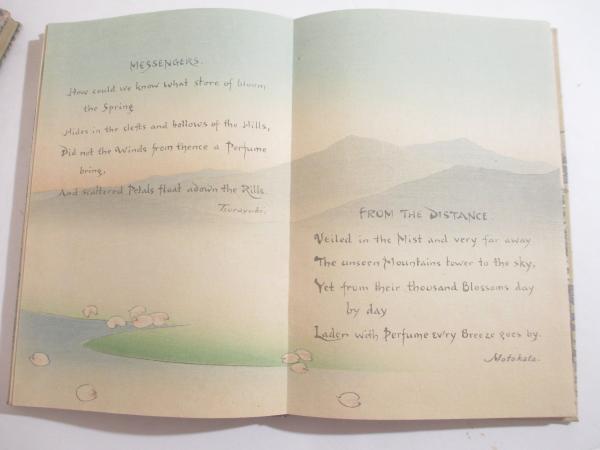 MESSENGERS.
How could we know what store of bloom
the Spring
Hides in the clefts and hollows of the Hills,
Did not the Winds from thence a Perfume
bring,
And scattered Petals float adown the Rills.
Tsurayuki.
FROM THE DISTANCE
Veiled in the Mist and very far away
The unseen Mountains tower to the sky,
Yet from their thousand Blossoms day
by day
Laden with Perfume ev'ry Breeze goes by.
Motokata.